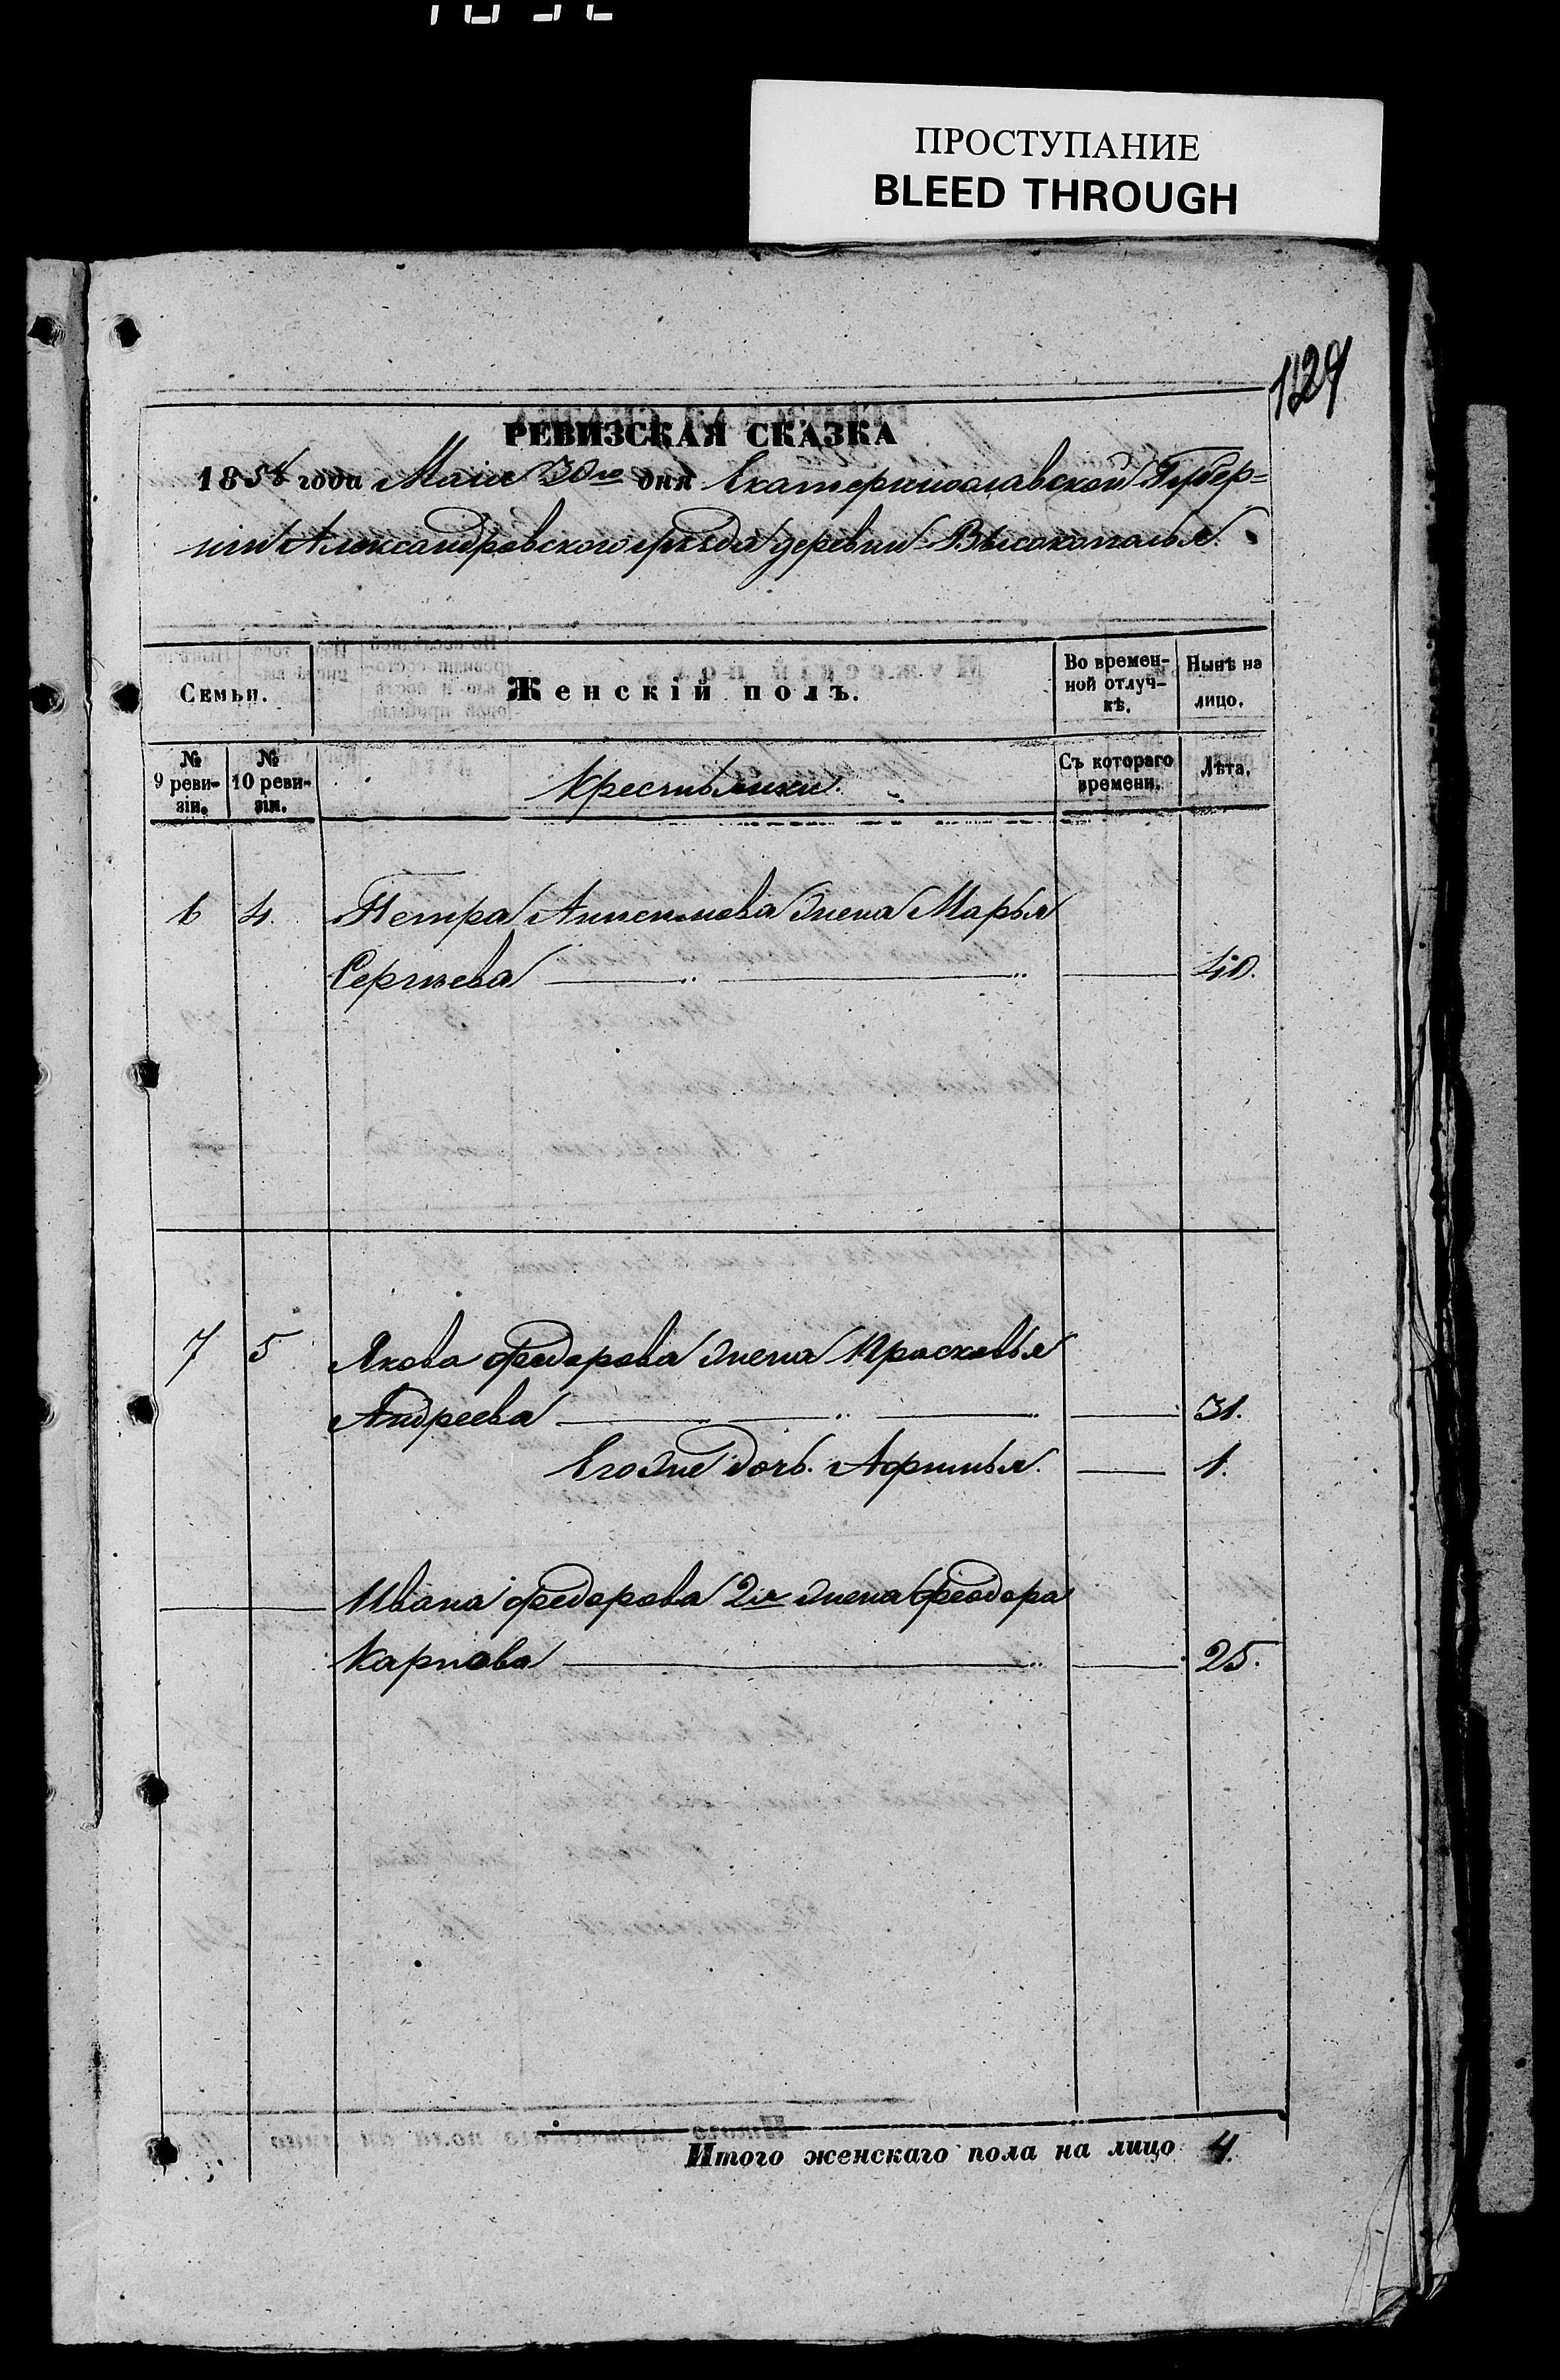 ПРОСТУПАНИЕ
BLEED THROUGH
1129
РЕВИЗСКАЯ СКАЗКА
1858 года Маія 30го дня Екатеринославской Губер=
ніи Александровского уѣзда деревни Высокополья.
Семьи.
Женскій полъ.
Во времен-
ной отлуч-
кѣ.
Нынѣ на
лицо.
№
9 реви-
зіи.
№
10 реви-
зіи.
Крестьянки.
Съ котораго
времени.
Лѣта.
6 4 Петра Анисимова жена Марья
Сергѣева 40.
7 5 Якова Федорова жена Прасковья
Андреева 31.
Егоже дочь. Афимья. 1.
Ивана Федорова 2я жена Феодора
Карпова 25.
Итого женскаго пола на лицо 4.